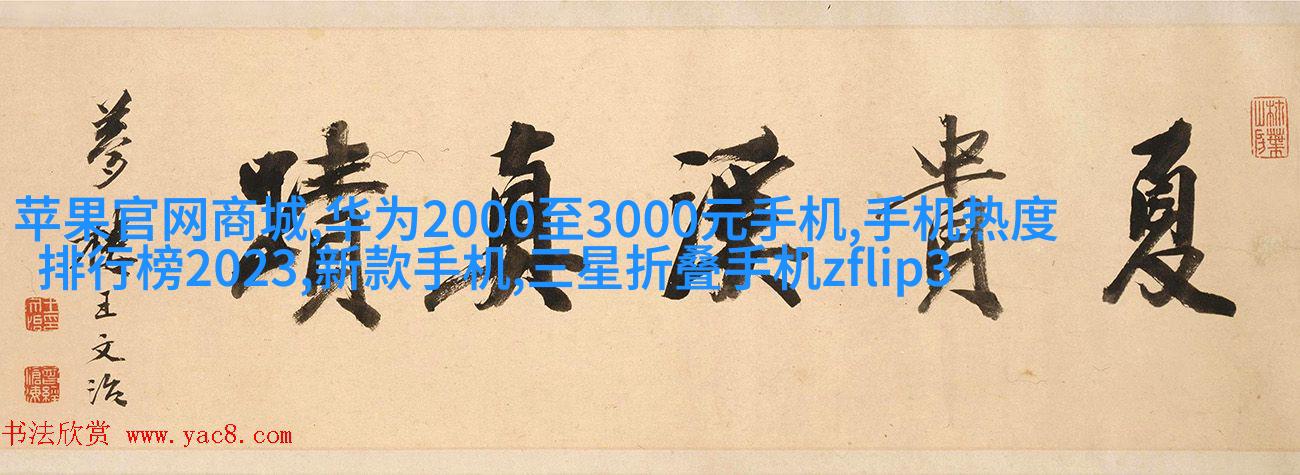 夏貴溪真蹟
夢樓王文治
曾經滄海
苹果官网商城,华为2000至3000元手机,手机热度
排行榜2023,新款手机,三星折叠手机zflip3
书法欣赏 www.yac8.com